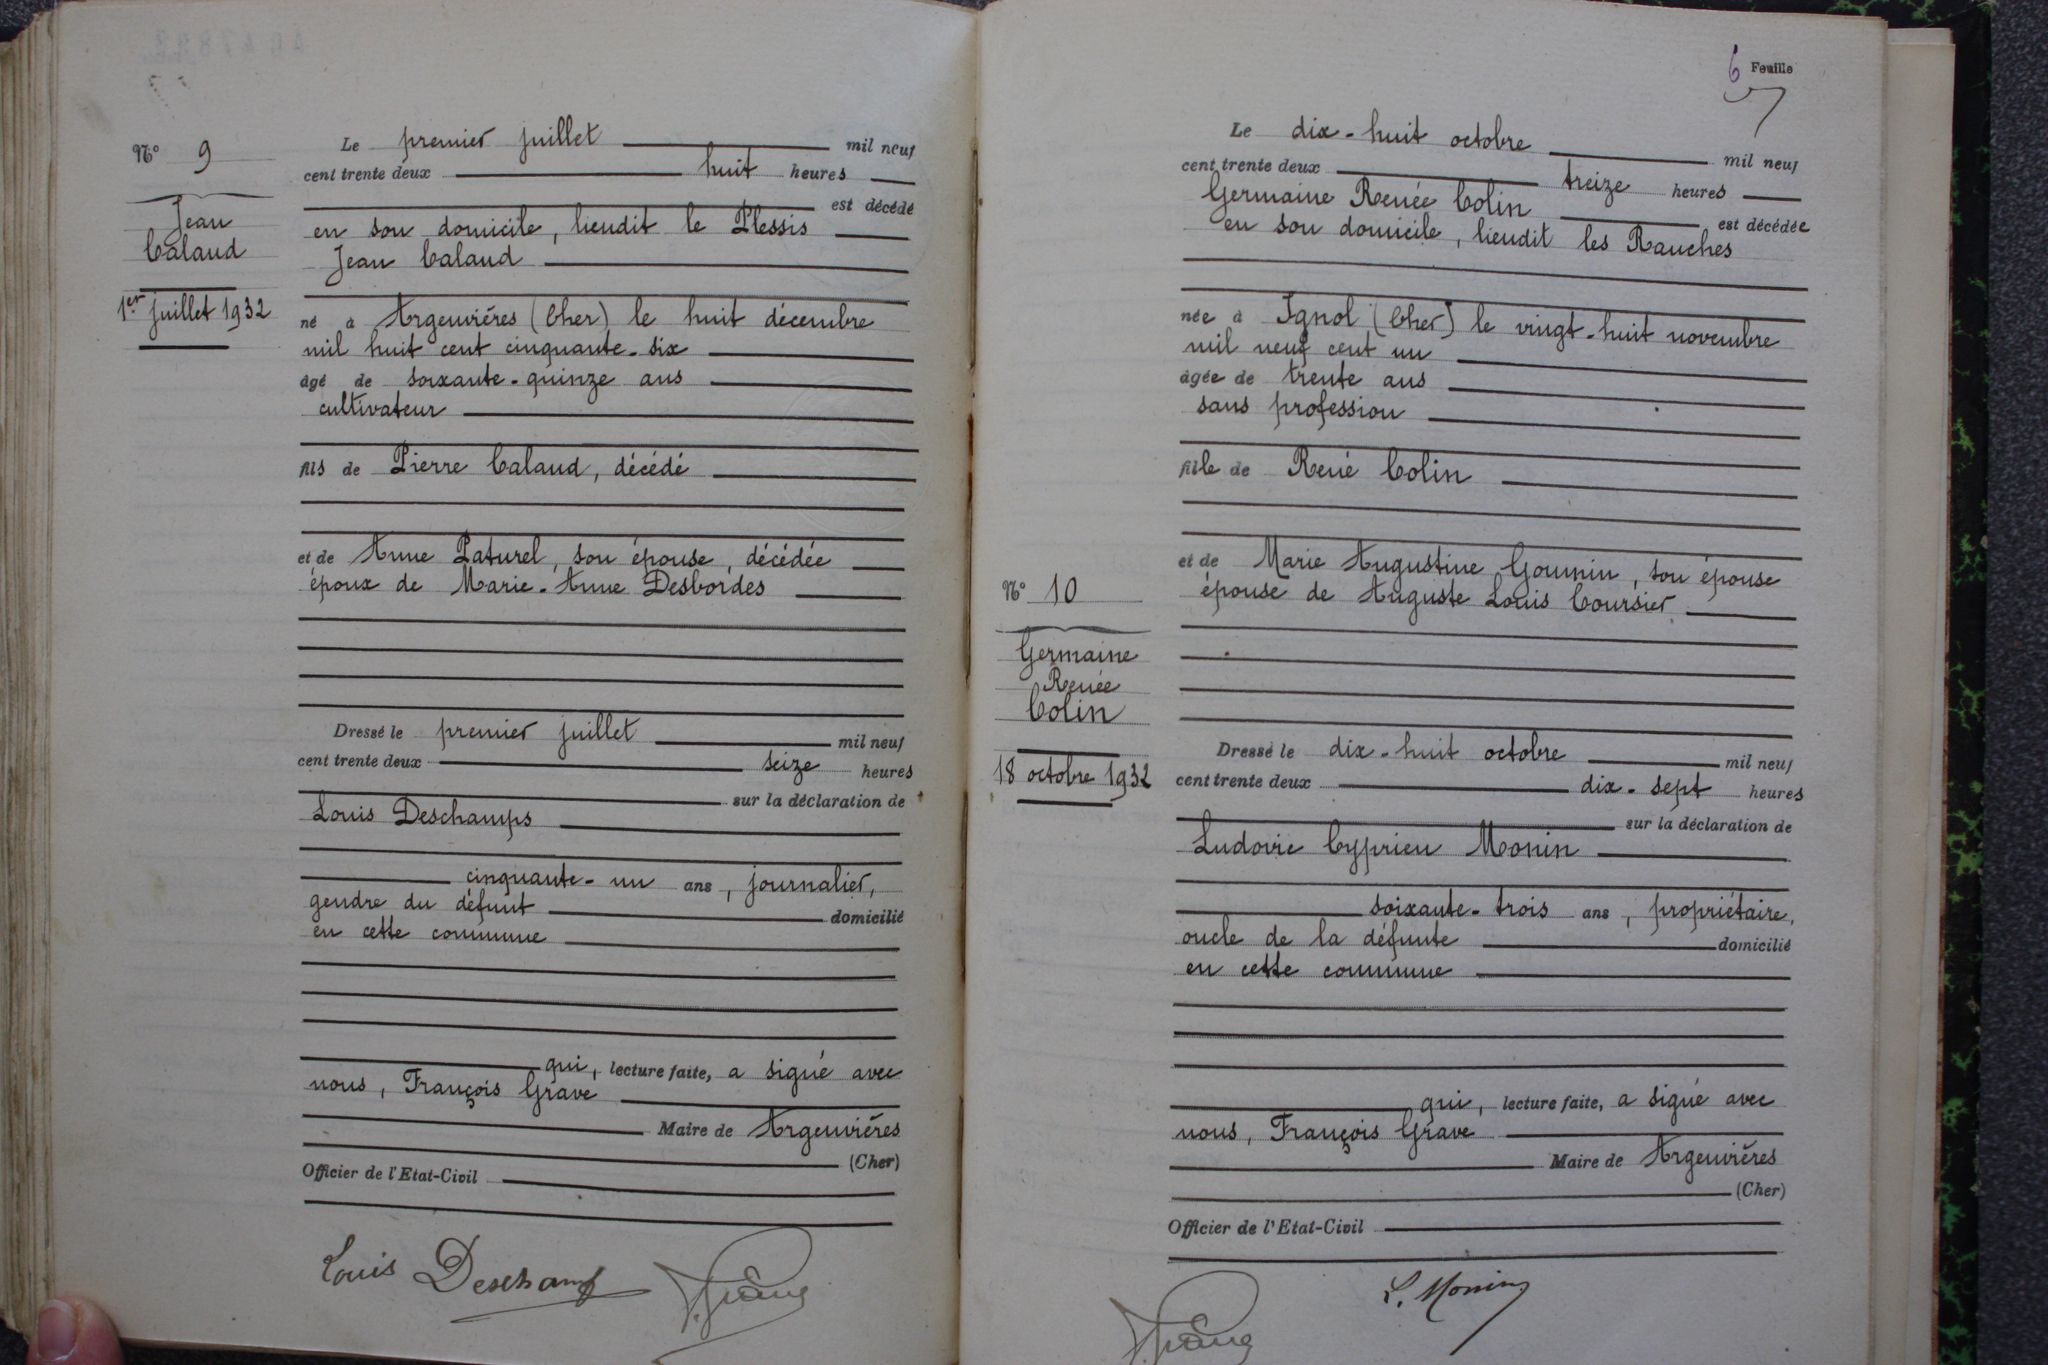 Nº 9
Jean
Calaud
1er juillet 1932
Le premier juillet mil neuf
cent trente deux huit heures
est décédé
en son domicile, lieudit le Plessis
Jean Calaud
né à Argenvières (Cher) le huit décembre
mil huit cent cinquante-six
âgé de soixante-quinze ans
cultivateur
fils de Pierre Calaud, décédé
et de Anne Paturel, son épouse, décédée
époux de Marie-Anne Desbordes
Dressé le premier juillet mil neuf
cent trente deux seize heures
sur la déclaration de
Louis Deschamps
cinquante-un ans, journalier,
gendre du défunt domicilié
en cette commune
qui, lecture faite, a signé avec
nous, François Grave
Maire de Argenvières
(Cher)
Officier de l'Etat-Civil
Louis Deschamps
6 Feuille
Nº 10
Germaine
Renée
Colin
18 octobre 1932
Le dix-huit octobre mil neuf
cent trente deux treize heures
Germaine Renée Colin est décédée
en son domicile, lieudit les Rauches
née à Ignol (Cher) le vingt-huit novembre
mil neuf cent un
âgée de trente ans
sans profession
fille de René Colin
et de Marie Augustine Goumin, son épouse
épouse de Auguste Louis Coursier
Dressé le dix-huit octobre mil neuf
cent trente deux dix-sept heures
sur la déclaration de
Ludovic Cyprien Monin
soixante-trois ans, propriétaire,
oncle de la défunte domicilié
en cette commune
qui, lecture faite, a signé avec
nous, François Grave
Maire de Argenvières
(Cher)
Officier de l'Etat-Civil
L. Monin